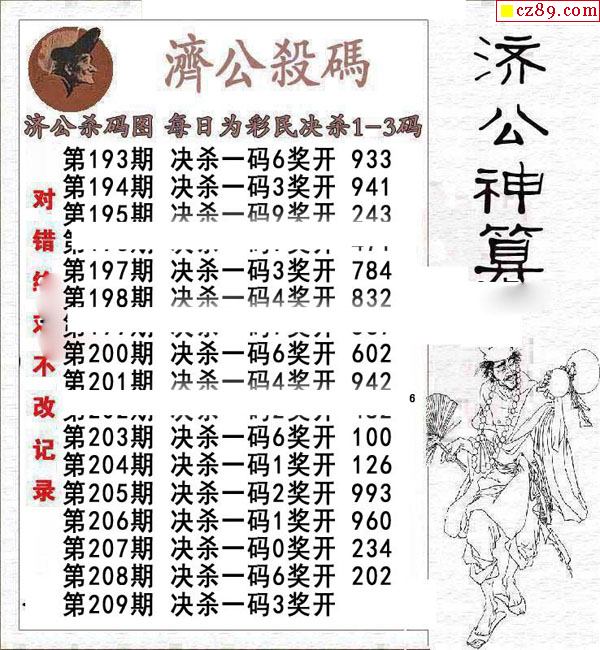 cz89.com
濟公殺碼
济公杀码图 每日为彩民决杀1-3码
第193期 决杀一码6奖开 933
第194期 决杀一码3奖开 941
第195期 决杀一码9奖开 243
第197期 决杀一码3奖开 784
第198期 决杀一码4奖开 832
第200期 决杀一码6奖开 602
第201期 决杀一码4奖开 942
第203期 决杀一码6奖开 100
第204期 决杀一码1奖开 126
第205期 决杀一码2奖开 993
第206期 决杀一码1奖开 960
第207期 决杀一码0奖开 234
第208期 决杀一码6奖开 202
第209期 决杀一码3奖开
对错
不改记录
6
济公神算